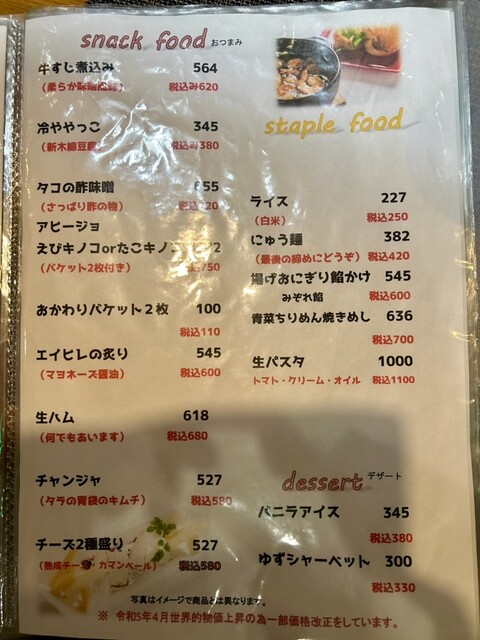 snack food おつまみ
牛すじ煮込み 564
税込み620
冷ややっこ 345
税込み380
タコの酢味噌 655
（さっぱり酢の物）
アヒージョ
えびキノコorたこキノコ
（バケット2枚付き） 税込750
おかわりバケット２枚 100
税込110
エイヒレの炙り 545
（マヨネーズ醤油） 税込600
生ハム 618
（何でもあいます） 税込680
チャンジャ 527
（タラの胃袋のキムチ） 税込580
チーズ2種盛り 527
（熟成チーズ・カマンベール） 税込580
staple food
ライス 227
（白米） 税込250
にゅう麺 382
（最後の締めにどうぞ） 税込420
揚げおにぎり餡かけ 545
みぞれ餡 税込600
青菜ちりめん焼きめし 636
税込700
生パスタ 1000
トマト・クリーム・オイル 税込1100
dessert デザート
バニラアイス 345
税込380
ゆずシャーベット 300
税込330
写真はイメージで商品とは異なります。
※ 令和5年4月世界的物価上昇の為一部価格改正をしています。